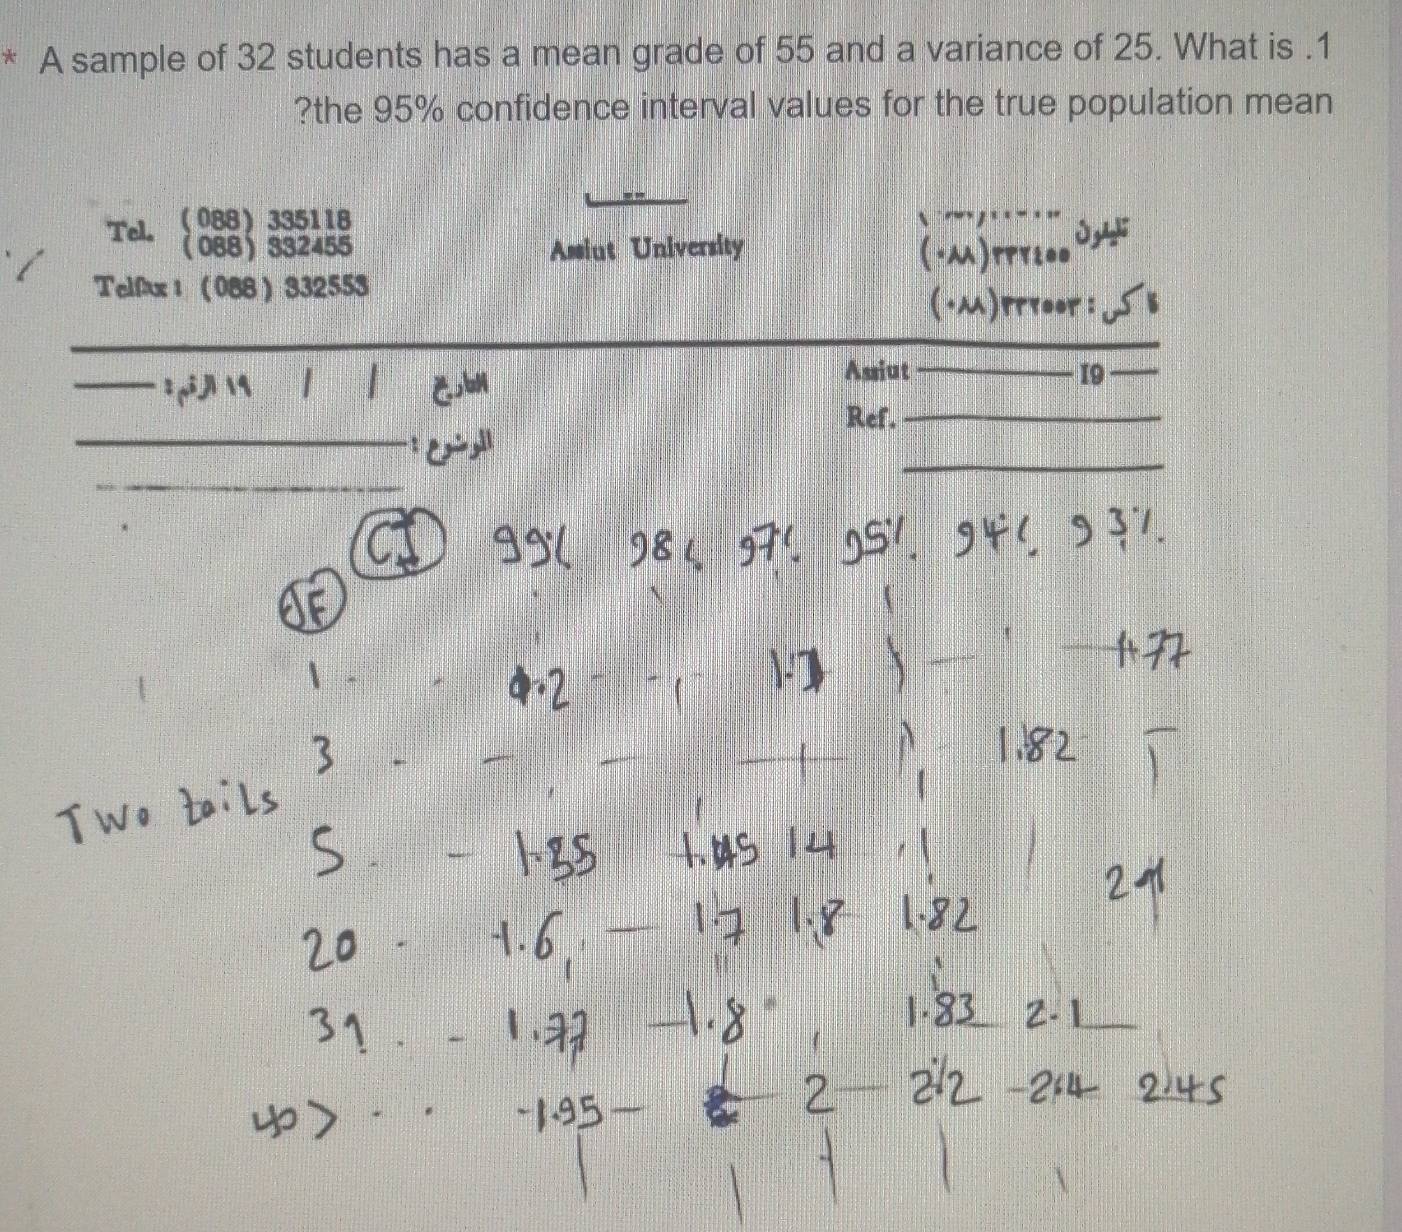 * A sample of 32 students has a mean grade of 55 and a variance of 25. What is .1
?the 95% confidence interval values for the true population mean
Tel. (088) 335118
(088) 332455
Telfax : (088) 332553
Assiut University
تليفون
(٠٨٨)
فاكس : (٠٨٨)٣٣٢٥٥٣
التاريخ / / ١٩ الرقم :
الموضوع :
Assiut 19
Ref.
CI 99% 98% 97% 95% 94% 93%
DF
1
3 1.82
Two tails
5 1.35 1.45 14
20 1.6 1.7 1.8 1.82
31 1.77 1.8 1.83 2.1
1.95 2 2.4 2.45